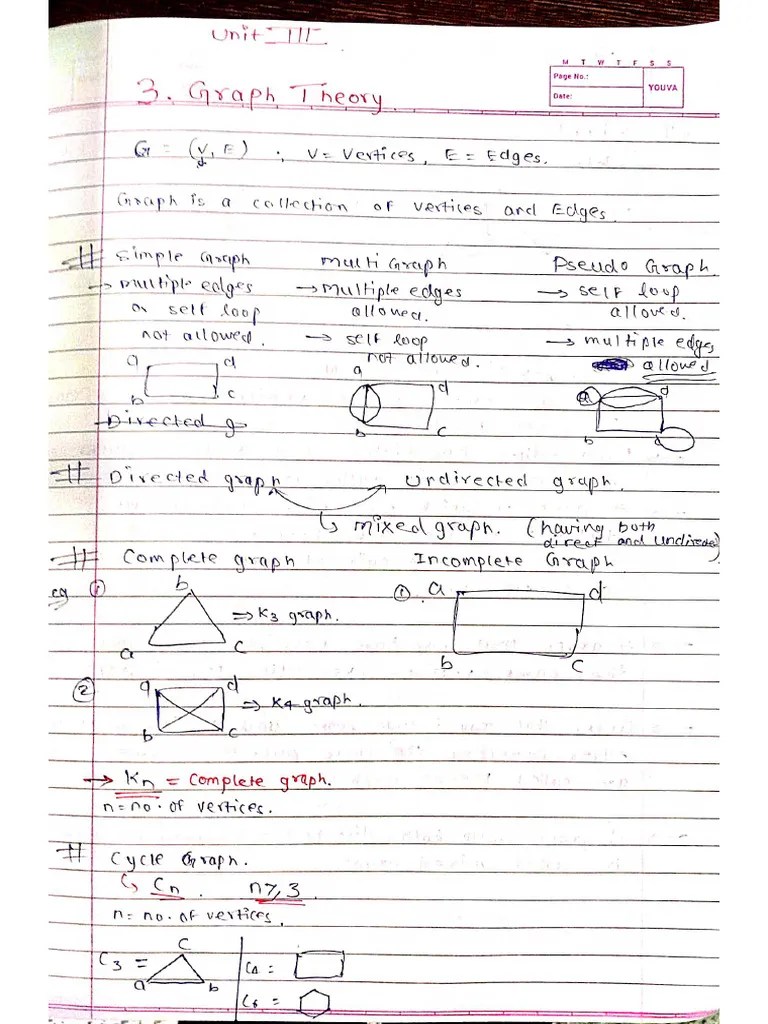 Unit III
M T W T F S S
Page No.:
Date:
YOUVA
3. Graph Theory
G = (V, E) ; V = Vertices, E = Edges.
Graph is a collection of vertices and Edges.
# Simple Graph Multi Graph Pseudo Graph.
→ multiple edges → multiple edges → self loop
or self loop allowed. allowed.
not allowed. → self loop → multiple edges
not allowed. allowed
a d
b c
a d
b c
a d
b d
Directed g
# Directed graph Undirected graph.
↳ mixed graph. (having both
direct and undirec)
# Complete graph Incomplete Graph
eg ① b
a c
⇒ K3 graph.
① a d
b c
② a d
b c
⇒ K4 graph.
→ Kn = complete graph.
n = no. of vertices.
# Cycle Graph.
↳ Cn. n ≥ 3
n = no. of vertices.
C3 = a b c
C4 =